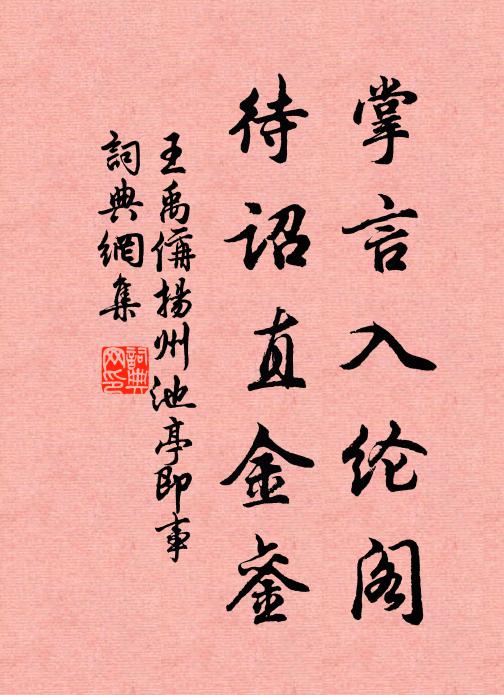 掌言入纶阁
待诏直金銮
王禹偁揚州池亭即事
詞典網集
詞典
网印